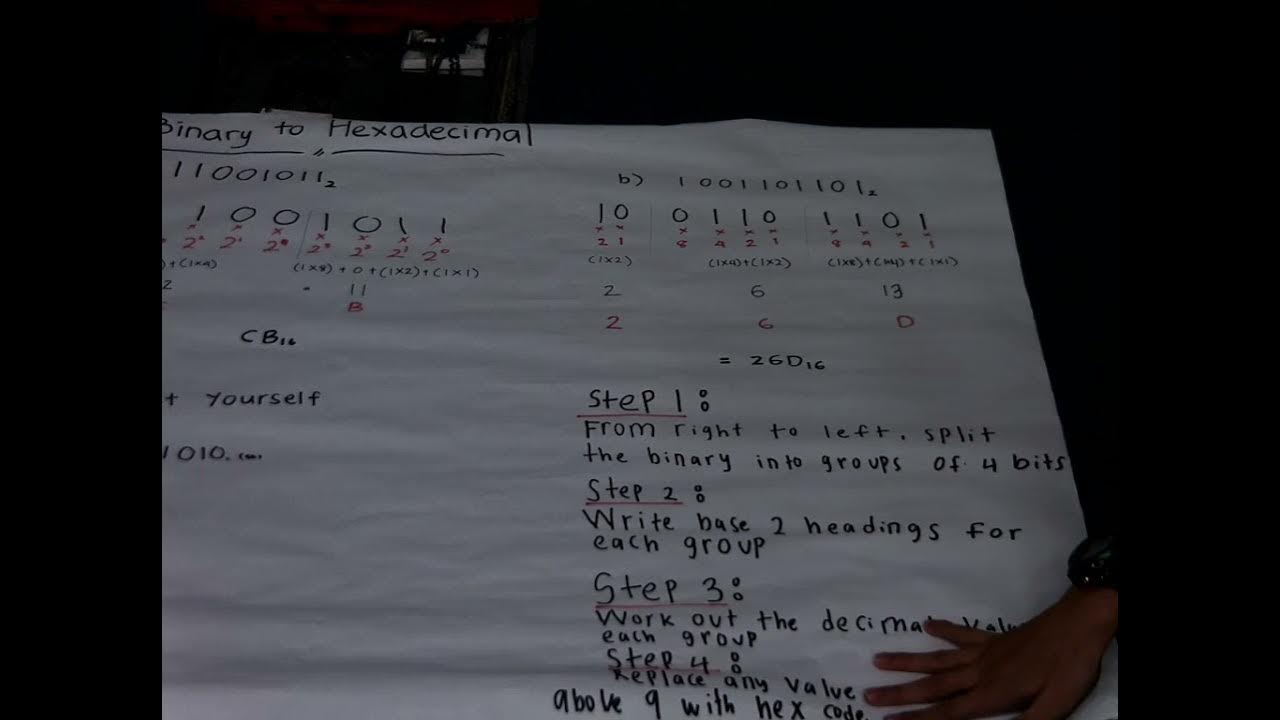 Binary to Hexadecimal
11001011₂
1 0 0 1 0 1 1
× × × × × × ×
2² 2¹ 2⁰ 2³ 2² 2¹ 2⁰
)+(1×4) (1×8) + 0 + (1×2) + (1×1)
2 11
B
CB₁₆
+ Yourself
1010.
b) 1001101101₂
10 0110 1101
× × × × × × × × ×
2 1 8 4 2 1 8 4 2 1
(1×2) (1×4)+(1×2) (1×8)+(1×4)+(1×1)
2 6 13
2 6 D
= 26D₁₆
Step 1:
From right to left. split
the binary into groups of 4 bits
Step 2:
Write base 2 headings for
each group
Step 3:
Work out the decimal
each group
Step 4:
Replace any value
above 9 with hex code.